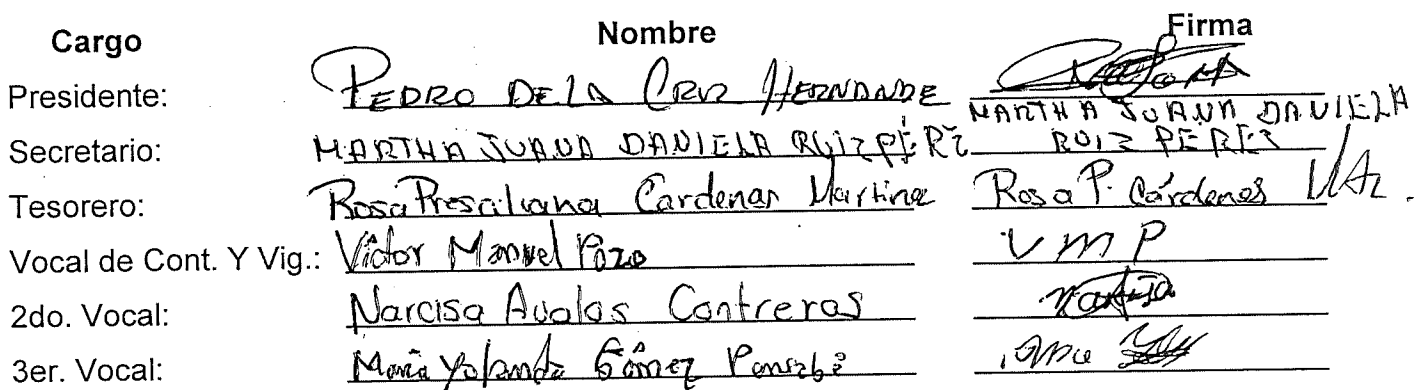 Cargo Nombre Firma
Presidente: PEDRO DE LA CRUZ HERNANDE
MARTHA JUANA DANIELA
Secretario: MARTHA JUANA DANIELA RUIZ PÉRZ RUIZ PEREZ
Tesorero: Rosa Presiliana Cardenas Martinez Rosa P. Cárdenas
Vocal de Cont. Y Vig.: Victor Manuel Pozo V M P
2do. Vocal: Narcisa Avalos Contreras Narcisa
3er. Vocal: Maria Yolanda Gómez